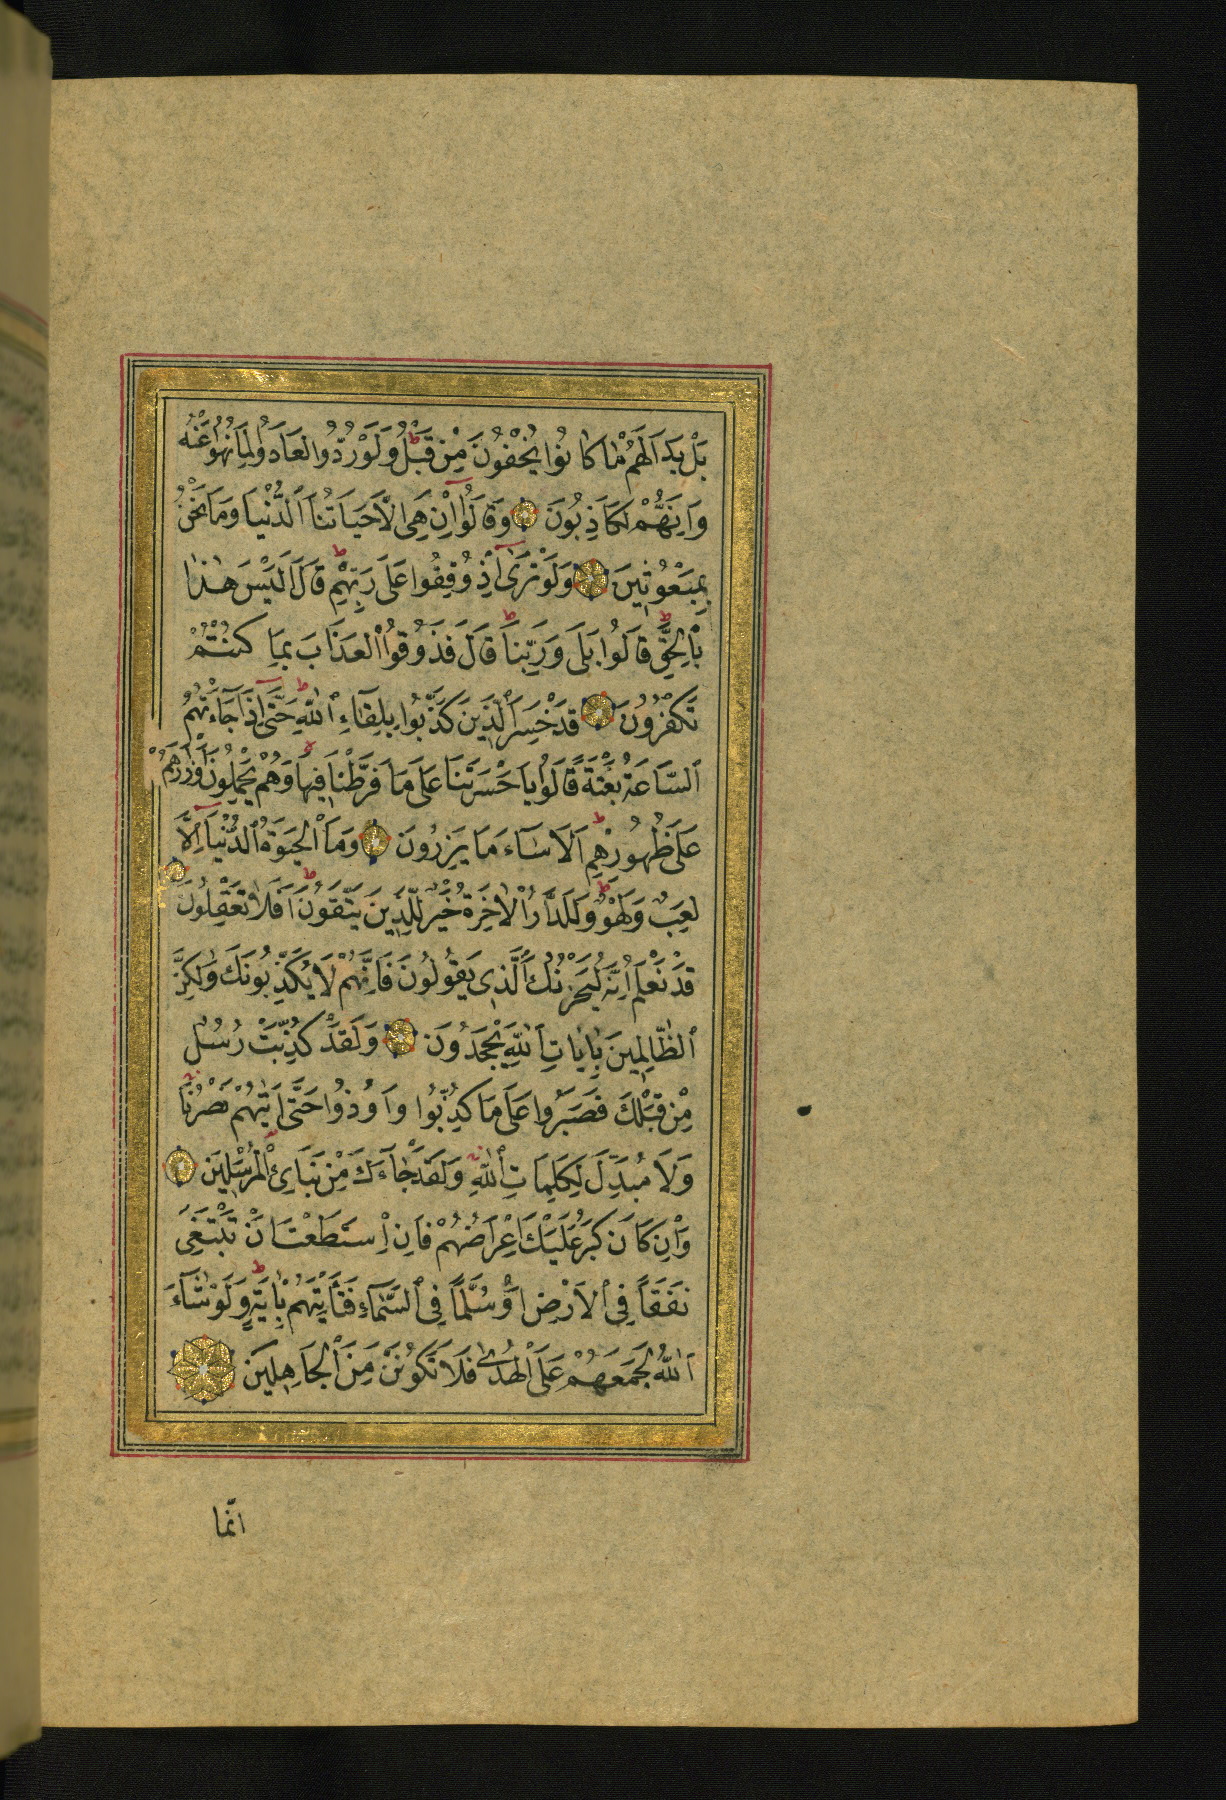 بَلْ بَدَا لَهُمْ مَا كَانُوا يُخْفُونَ مِنْ قَبْلُ وَلَوْ رُدُّوا لَعَادُوا لِمَا نُهُوا عَنْهُ
وَاِنَّهُمْ لَكَاذِبُونَ وَقَالُوا اِنْ هِىَ اِلَّا حَيَاتُنَا ٱلدُّنْيَا وَمَا نَحْنُ
بِمَبْعُوثِينَ وَلَوْ تَرٰٓى اِذْ وُقِفُوا عَلَى رَبِّهِمْ قَالَ اَلَيْسَ هٰذَا
بِالْحَقِّ قَالُوا بَلَى وَرَبِّنَا قَالَ فَذُوقُوا ٱلْعَذَابَ بِمَا كُنْتُمْ
تَكْفُرُونَ قَدْ خَسِرَ ٱلَّذِينَ كَذَّبُوا بِلِقَٓاءِ ٱللّٰهِ حَتَّٓى اِذَا جَٓاءَتْهُمُ
ٱلسَّاعَةُ بَغْتَةً قَالُوا يَا حَسْرَتَنَا عَلَى مَا فَرَّطْنَا فِيهَا وَهُمْ يَحْمِلُونَ اَوْزَارَهُمْ
عَلَى ظُهُورِهِمْ اَلَا سَٓاءَ مَا يَزِرُونَ وَمَا ٱلْحَيٰوةُ ٱلدُّنْيَٓا اِلَّا
لَعِبٌ وَلَهْوٌ وَلَلدَّارُ ٱلْاٰخِرَةُ خَيْرٌ لِلَّذِينَ يَتَّقُونَ اَفَلَا تَعْقِلُونَ
قَدْ نَعْلَمُ اِنَّهُ لَيَحْزُنُكَ ٱلَّذِى يَقُولُونَ فَاِنَّهُمْ لَا يُكَذِّبُونَكَ وَلٰكِنَّ
ٱلظَّالِمِينَ بِاٰيَاتِ ٱللّٰهِ يَجْحَدُونَ وَلَقَدْ كُذِّبَتْ رُسُلٌ
مِنْ قَبْلِكَ فَصَبَرُوا عَلَى مَا كُذِّبُوا وَاُوذُوا حَتَّى اَتٰيهُمْ نَصْرُنَا
وَلَا مُبَدِّلَ لِكَلِمَاتِ ٱللّٰهِ وَلَقَدْ جَٓاءَكَ مِنْ نَبَاِئ ٱلْمُرْسَلِينَ
وَاِنْ كَانَ كَبُرَ عَلَيْكَ اِعْرَاضُهُمْ فَاِنِ ٱسْتَطَعْتَ اَنْ تَبْتَغِىَ
نَفَقًا فِى ٱلْاَرْضِ اَوْ سُلَّمًا فِى ٱلسَّمَٓاءِ فَتَأْتِيَهُمْ بِاٰيَةٍ وَلَوْ شَٓاءَ
ٱللّٰهُ لَجَمَعَهُمْ عَلَى ٱلْهُدٰى فَلَا تَكُونَنَّ مِنَ ٱلْجَاهِلِينَ
انّما